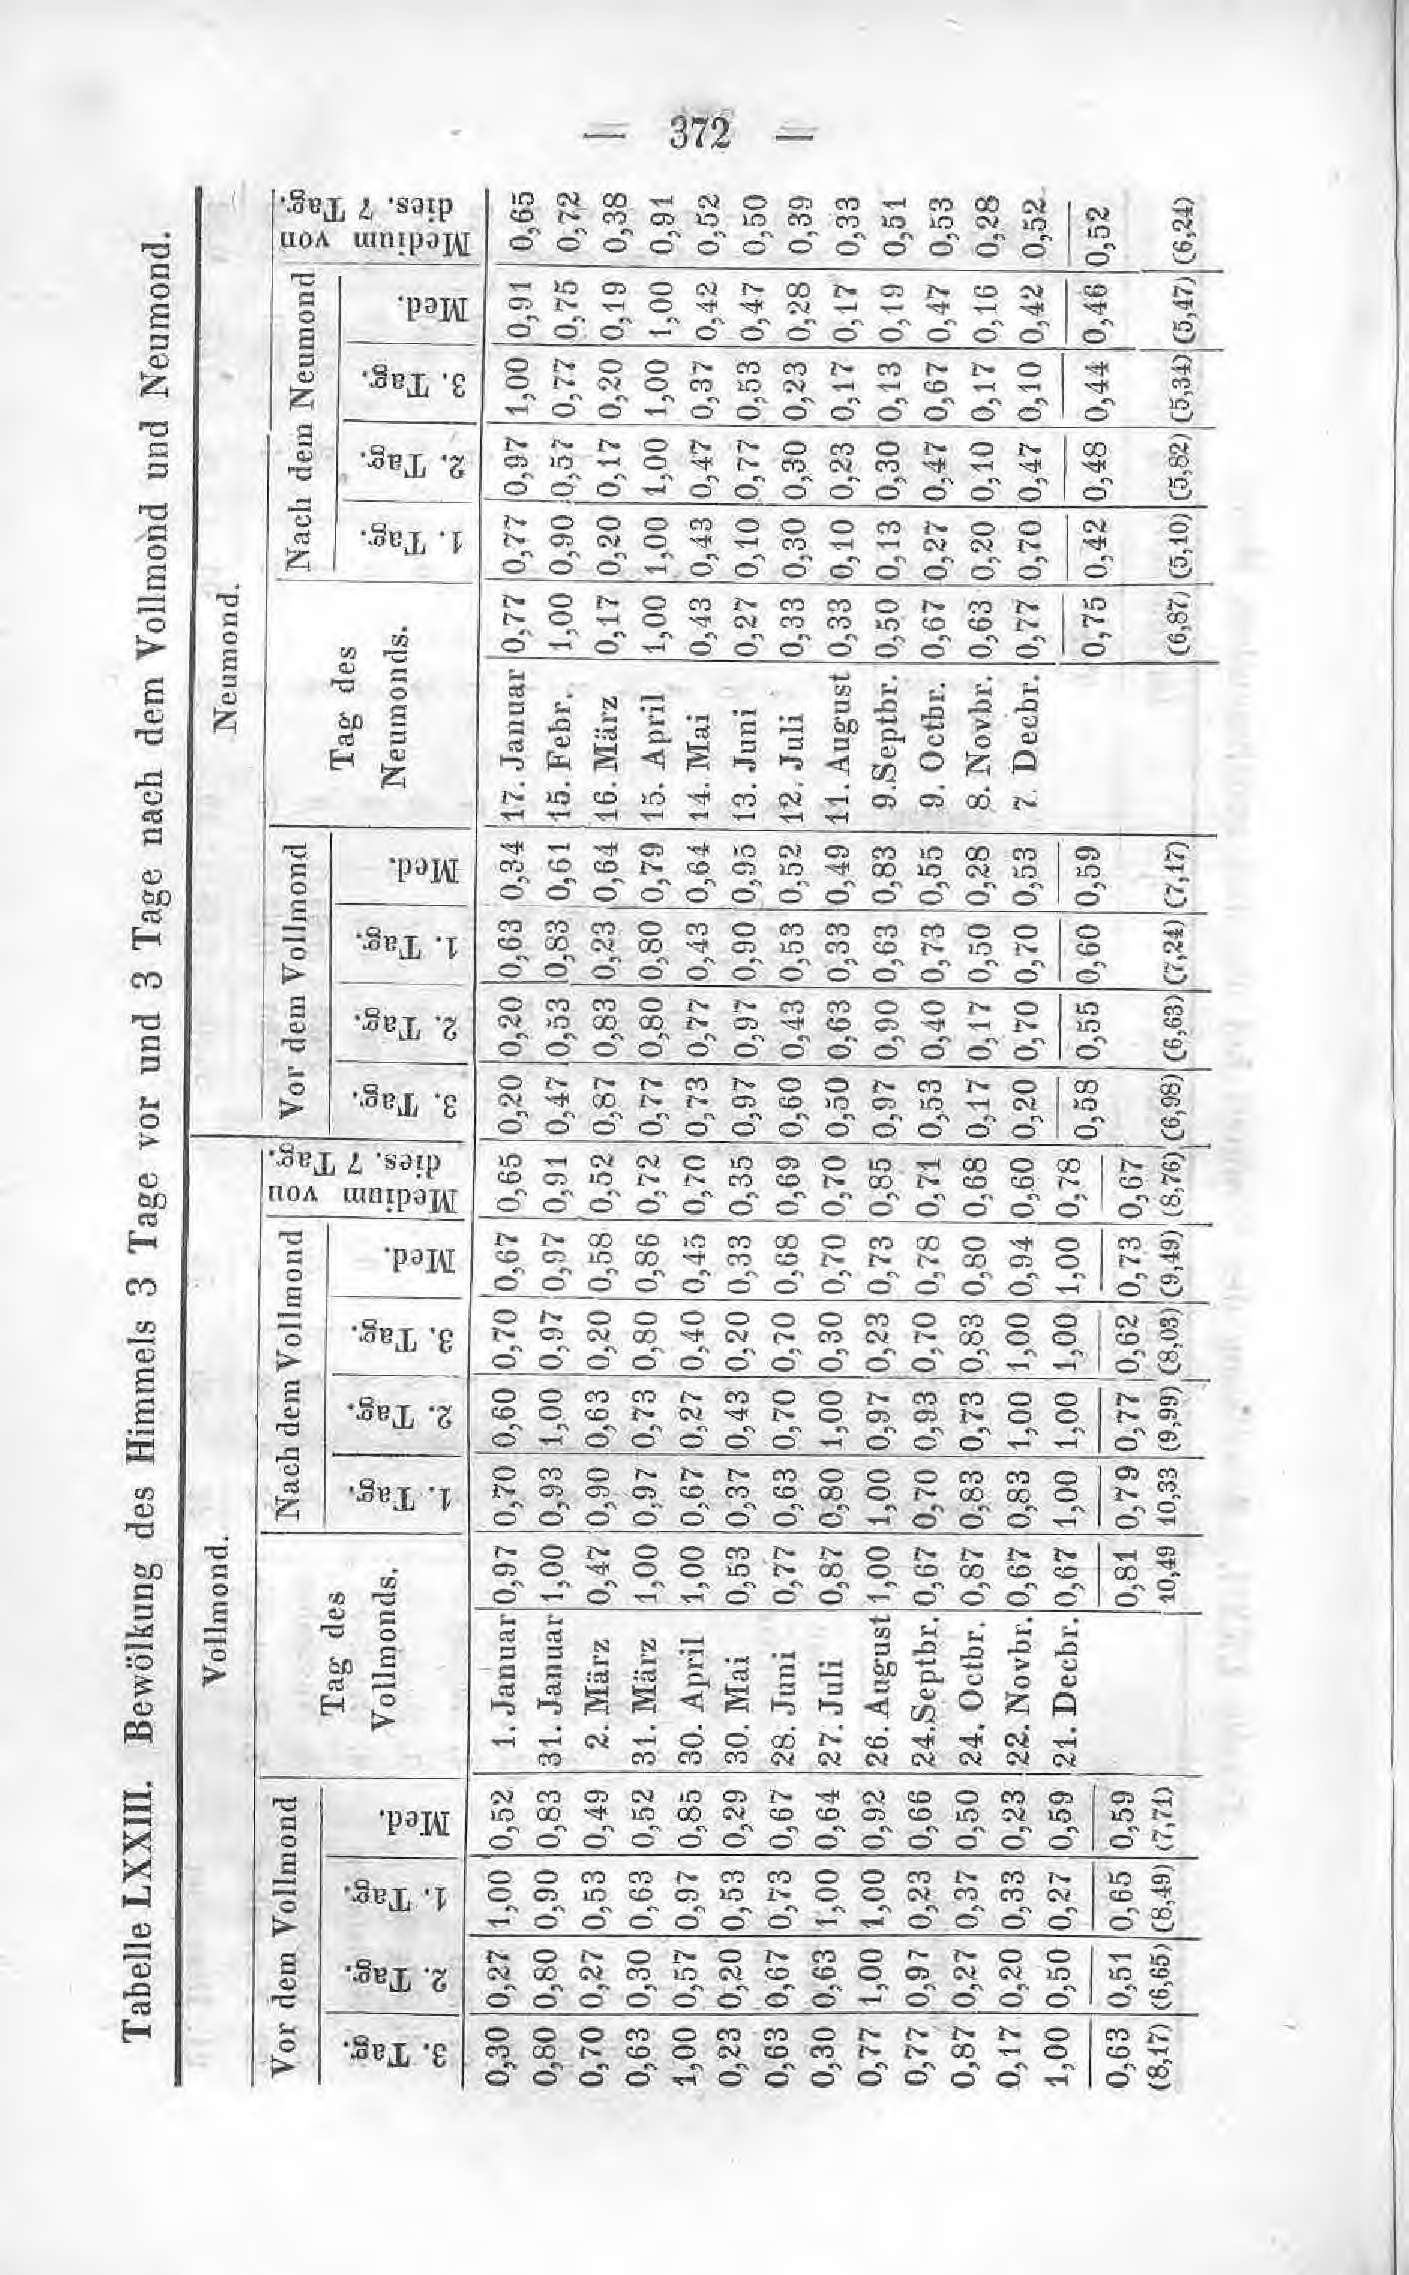 — 372 —
Tabelle LXXIII. Bewölkung des Himmels 3 Tage vor und 3 Tage nach dem Vollmond und Neumond.
Vollmond. Neumond.
Vor dem Vollmond Tag des Vollmonds. Nach dem Vollmond Medium von dies. 7 Tag. Vor dem Vollmond Tag des Neumonds. Nach dem Neumond Medium von dies. 7 Tag.
3. Tag. 2. Tag. 1. Tag. Med. 1. Tag. 2. Tag. 3. Tag. Med. 3. Tag. 2. Tag. 1. Tag. Med. 1. Tag. 2. Tag. 3. Tag. Med.
0,30 0,27 1,00 0,52 1. Januar 0,97 0,70 0,60 0,70 0,67 0,65 0,20 0,20 0,63 0,34 17. Januar 0,77 0,77 0,97 1,00 0,91 0,65
0,80 0,80 0,90 0,83 31. Januar 1,00 0,93 1,00 0,97 0,97 0,91 0,47 0,53 0,83 0,61 15. Febr. 1,00 0,90 0,57 0,77 0,75 0,72
0,70 0,27 0,53 0,49 2. März 0,47 0,90 0,63 0,20 0,58 0,52 0,87 0,83 0,23 0,64 16. März 0,17 0,20 0,17 0,20 0,19 0,38
0,63 0,30 0,63 0,52 31. März 1,00 0,97 0,73 0,80 0,86 0,72 0,77 0,80 0,80 0,79 15. April 1,00 1,00 1,00 1,00 1,00 0,91
1,00 0,57 0,97 0,85 30. April 1,00 0,67 0,27 0,40 0,45 0,70 0,73 0,77 0,43 0,64 14. Mai 0,43 0,43 0,47 0,37 0,42 0,52
0,23 0,20 0,53 0,29 30. Mai 0,53 0,37 0,43 0,20 0,33 0,35 0,97 0,97 0,90 0,95 13. Juni 0,27 0,10 0,77 0,53 0,47 0,50
0,63 0,67 0,73 0,67 28. Juni 0,77 0,63 0,70 0,70 0,68 0,69 0,60 0,43 0,53 0,52 12. Juli 0,33 0,30 0,30 0,23 0,28 0,39
0,30 0,63 1,00 0,64 27. Juli 0,87 0,80 1,00 0,30 0,70 0,70 0,50 0,63 0,33 0,49 11. August 0,33 0,10 0,23 0,17 0,17 0,33
0,77 1,00 1,00 0,92 26. August 1,00 1,00 0,97 0,23 0,73 0,85 0,97 0,90 0,63 0,83 9. Septbr. 0,50 0,13 0,30 0,13 0,19 0,51
0,77 0,97 0,23 0,66 24. Septbr. 0,67 0,70 0,93 0,70 0,78 0,71 0,53 0,40 0,73 0,55 9. Octbr. 0,67 0,27 0,47 0,67 0,47 0,53
0,87 0,27 0,37 0,50 24. Octbr. 0,87 0,83 0,73 0,83 0,80 0,68 0,17 0,17 0,50 0,28 8. Novbr. 0,63 0,20 0,10 0,17 0,16 0,28
0,17 0,20 0,33 0,23 22. Novbr. 0,67 0,83 1,00 1,00 0,94 0,60 0,20 0,70 0,70 0,53 7. Decbr. 0,77 0,70 0,47 0,10 0,42 0,52
1,00 0,50 0,27 0,59 21. Decbr. 0,67 1,00 1,00 1,00 1,00 0,78 0,58 0,55 0,60 0,59 0,75 0,42 0,48 0,44 0,46 0,52
0,63 0,51 0,65 0,59 0,81 0,79 0,77 0,62 0,73 0,67
(8,17) (6,65) (8,49) (7,71) 10,49 10,33 (9,99) (8,03) (9,49) (8,76) (6,98) (6,63) (7,24) (7,17) (6,87) (5,10) (5,82) (5,34) (5,47) (6,24)